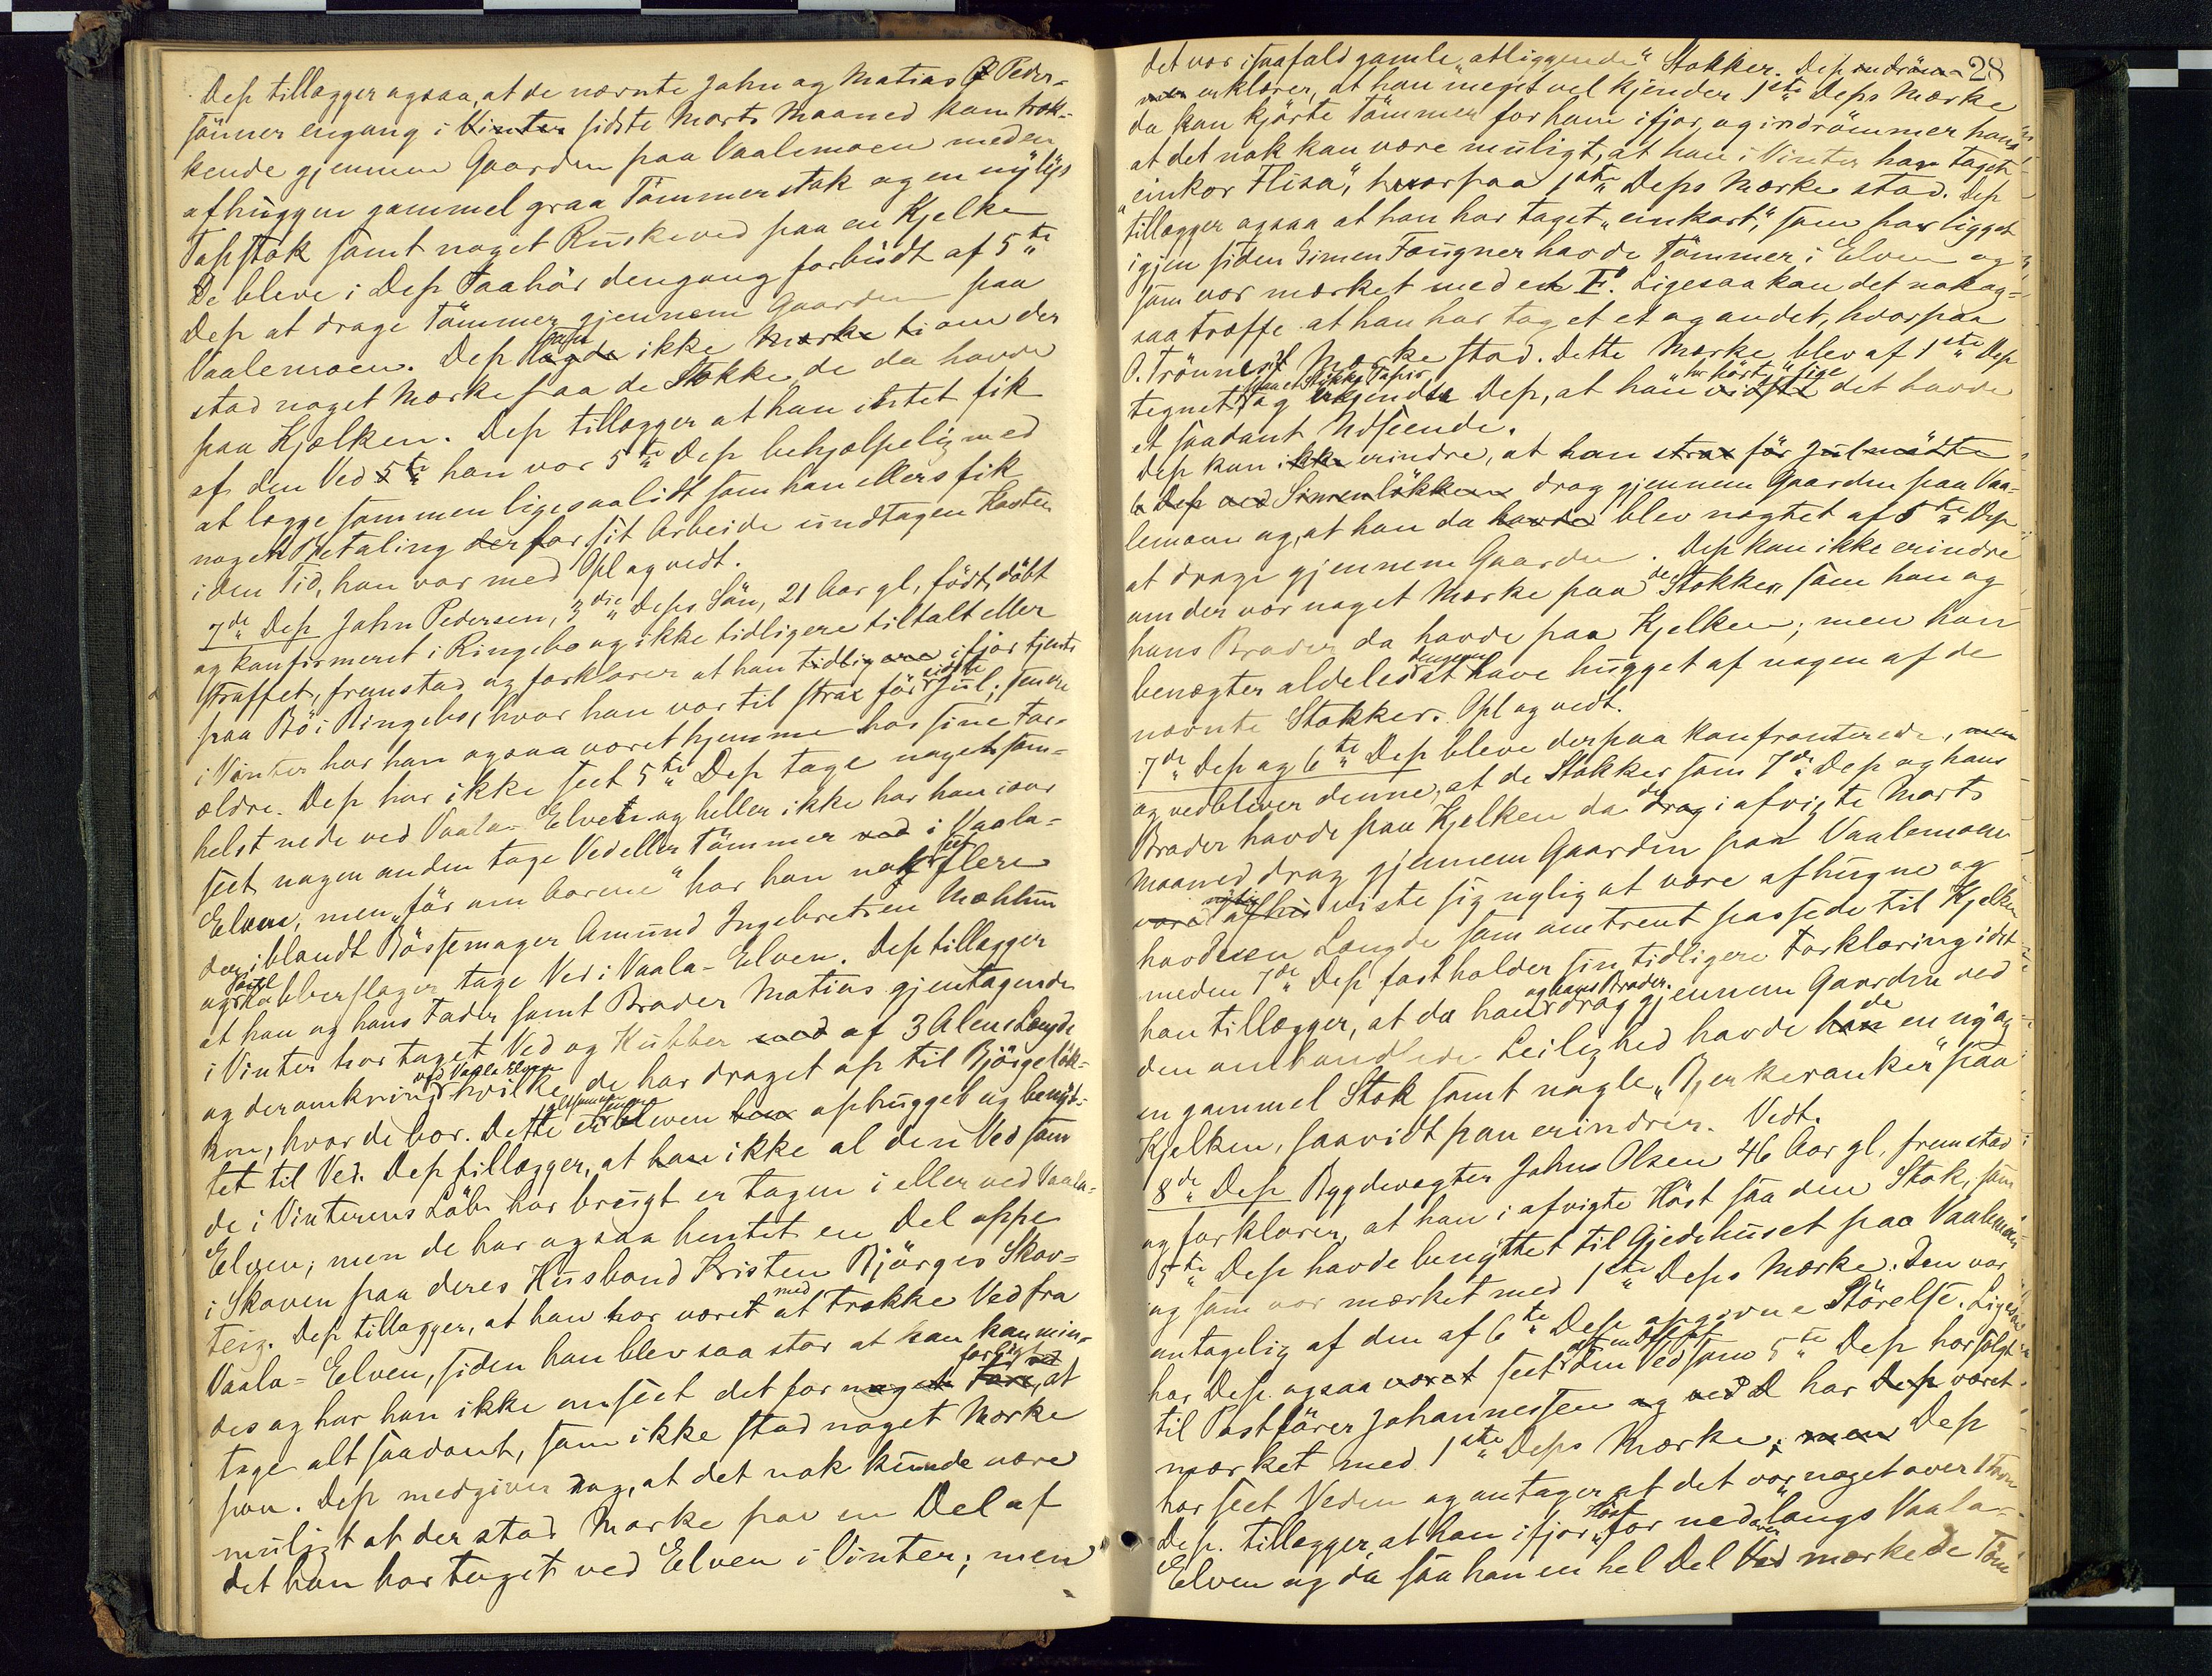 Dep tillægger ogsaa, at de nævnte John og Matias P Peder-
sønner engang i Vinter sidste Marts Maaned kom træk-
kende gjennem Gaarden paa Vaalemoen med en
afhuggen gammel graa Tømmerstok og en nylig
Topstok samt noget Ruskeved paa en Kjelke
De bleve i Dep Paahør dengang forbudt af 5te
Dep at drage Tømmer gjennem Gaarden paa
Vaalemoen. Dep lagde ikke Mærke ti om der
stod noget Mærke paa de Stokke, de da havde
paa Kjælken. Dep tillægger at han intet fik
af den Ved 5te han var 5te Dep behjælpelig med
at lægge sammen ligesaalidt som han ellers fik
nogen Betaling derfor sit Arbeide undtagen Kosten
i den Tid, han var med Opl og vedt.
7de Dep John Pedersen, 3die Deps Søn, 21 Aar gl, født, døbt
og konfirmeret i Ringebo og ikke tidligere tiltalt eller
straffet, fremstod og forklarer at han tidligere ifjor tjente
paa Bø i Ringebo, hvor han var til strax før sidste Jul; senere
i Vinter har han ogsaa været hjemme hos sine For-
ældre. Dep har ikke seet 5te Dep tage noget som-
helst nede ved Vaala-Elven og heller ikke har han iaar
seet nogen anden tage Ved eller Tømmer ved i Vaala-
Elven, men „før om Aarene" har han nok seet flere
deriblandt Bøssemager Amund Ingebretsen Mæhlum
og Kobberslager tage Ved i Vaala-Elven. Dep tillægger
at han og hans Fader samt Broder Matias gjentagende
i Vinter har taget Ved og Kubber med af 3 Alens Længde
og deromkring ved Vaala Elven hvilke de har draget op til Bjørgeløk-
ken, hvor de bor. Dette er altsammen bleven ophugget og benyt-
tet til Ved. Dep tillægger, at han ikke al den Ved som
de i Vinterens Løb har brugt er tagen i eller ved Vaala-
Elven; men de har ogsaa hentet en Del oppe
i Skoven paa deres Husbond Kristen Bjørges Skov-
teig. Dep tillægger, at han har været med at trække Ved fra
Vaala-Elven, siden han blev saa stor at han kan min-
des og har han ikke anseet det for noget at
tage alt saadant, som ikke stod noget Mærke
paa. Dep medgiver dog, at det nok kunde være
muligt at der stod Mærke paa en Del af
det han har taget ved Elven i Vinter; men
28
det var isaafald gamle „atliggende" Stokker. Dep indrøm-
mer erklærer, at han meget vel kjender 1ste Deps Mærke
da han kjørte Tømmer for ham ifjor, og indrømmer han
at det nok kan være muligt, at han i Vinter har taget
„einkor Flisa", hvorpaa 1ste Deps Mærke stod. Dep
tillægger ogsaa at han har taget „einkort", som har ligget
igjen siden Simen Fougner havde Tømmer i Elven og
som var mærket med et F. Ligesaa kan det nok og-
saa træffe at han har taget et og andet, hvorpaa
P. Trønnes Mærke stod. Dette Mærke blev af 1ste Dep
tegnet paa et Stykke Papir og Dep, at han har hørt sige det havde
et saadant Udseende.
Dep kan ikke erindre, at han strax før Jul mødte
6 Dep ved Simenløkken drog gjennem Gaarden paa Vaa-
lemoen og, at han da havde blev nægtet af 5te Dep
at drage gjennem Gaarden. Dep kan ikke erindre
om der var noget Mærke paa de Stokker, som han og
hans Broder da havde paa Kjelken; men han
benægter aldeles dengang at have hugget af nogen af de
nævnte Stokker. Opl og vedt.
7de Dep og 6te Dep bleve derpaa konfronterede, men
og vedbliver denne, at de Stokker som 7de Dep og hans
Broder havde paa Kjelken da de drog i afvigte Marts
Maaned drog gjennem Gaarden paa Vaalemoen
viste sig nylig at være afhugne og
havde en Længde som omtrent passede til Kjelken
meden 7de Dep fastholder sin tidligere Forklaring idet
han tillægger, at da han og hans Broder drog gjennem Gaarden ved
den omhandlede Leilighed havde han de en ny og
en gammel Stok samt nogle „Bjerkeranker" paa
Kjelken, saavidt han erindrer. Vedt.
8de Dep Bygdevægter Johns Olsen 46 Aar gl, fremstod
og forklarer, at han i afvigte Høst saa den Stok, som
5te Dep havde benyttet til Gjedehuset paa Vaalemoen
og som var mærket med 1ste Deps Mærke. Den var
antagelig af den af 6te Dep opgivne Størrelse. Ligesaa
har Dep ogsaa været seet den Ved som 5te Dep har solgt
til Postfører Johannessen og ved har Dep været
mærket med 1ste Deps Mærke; men Dep
har seet Veden og antager at det var noget over 1 Favn
Dep. tillægger at han ifjor Høst for nedover langs Vaala-
Elven og da saa han en hel Del Ved mærkede Tøm